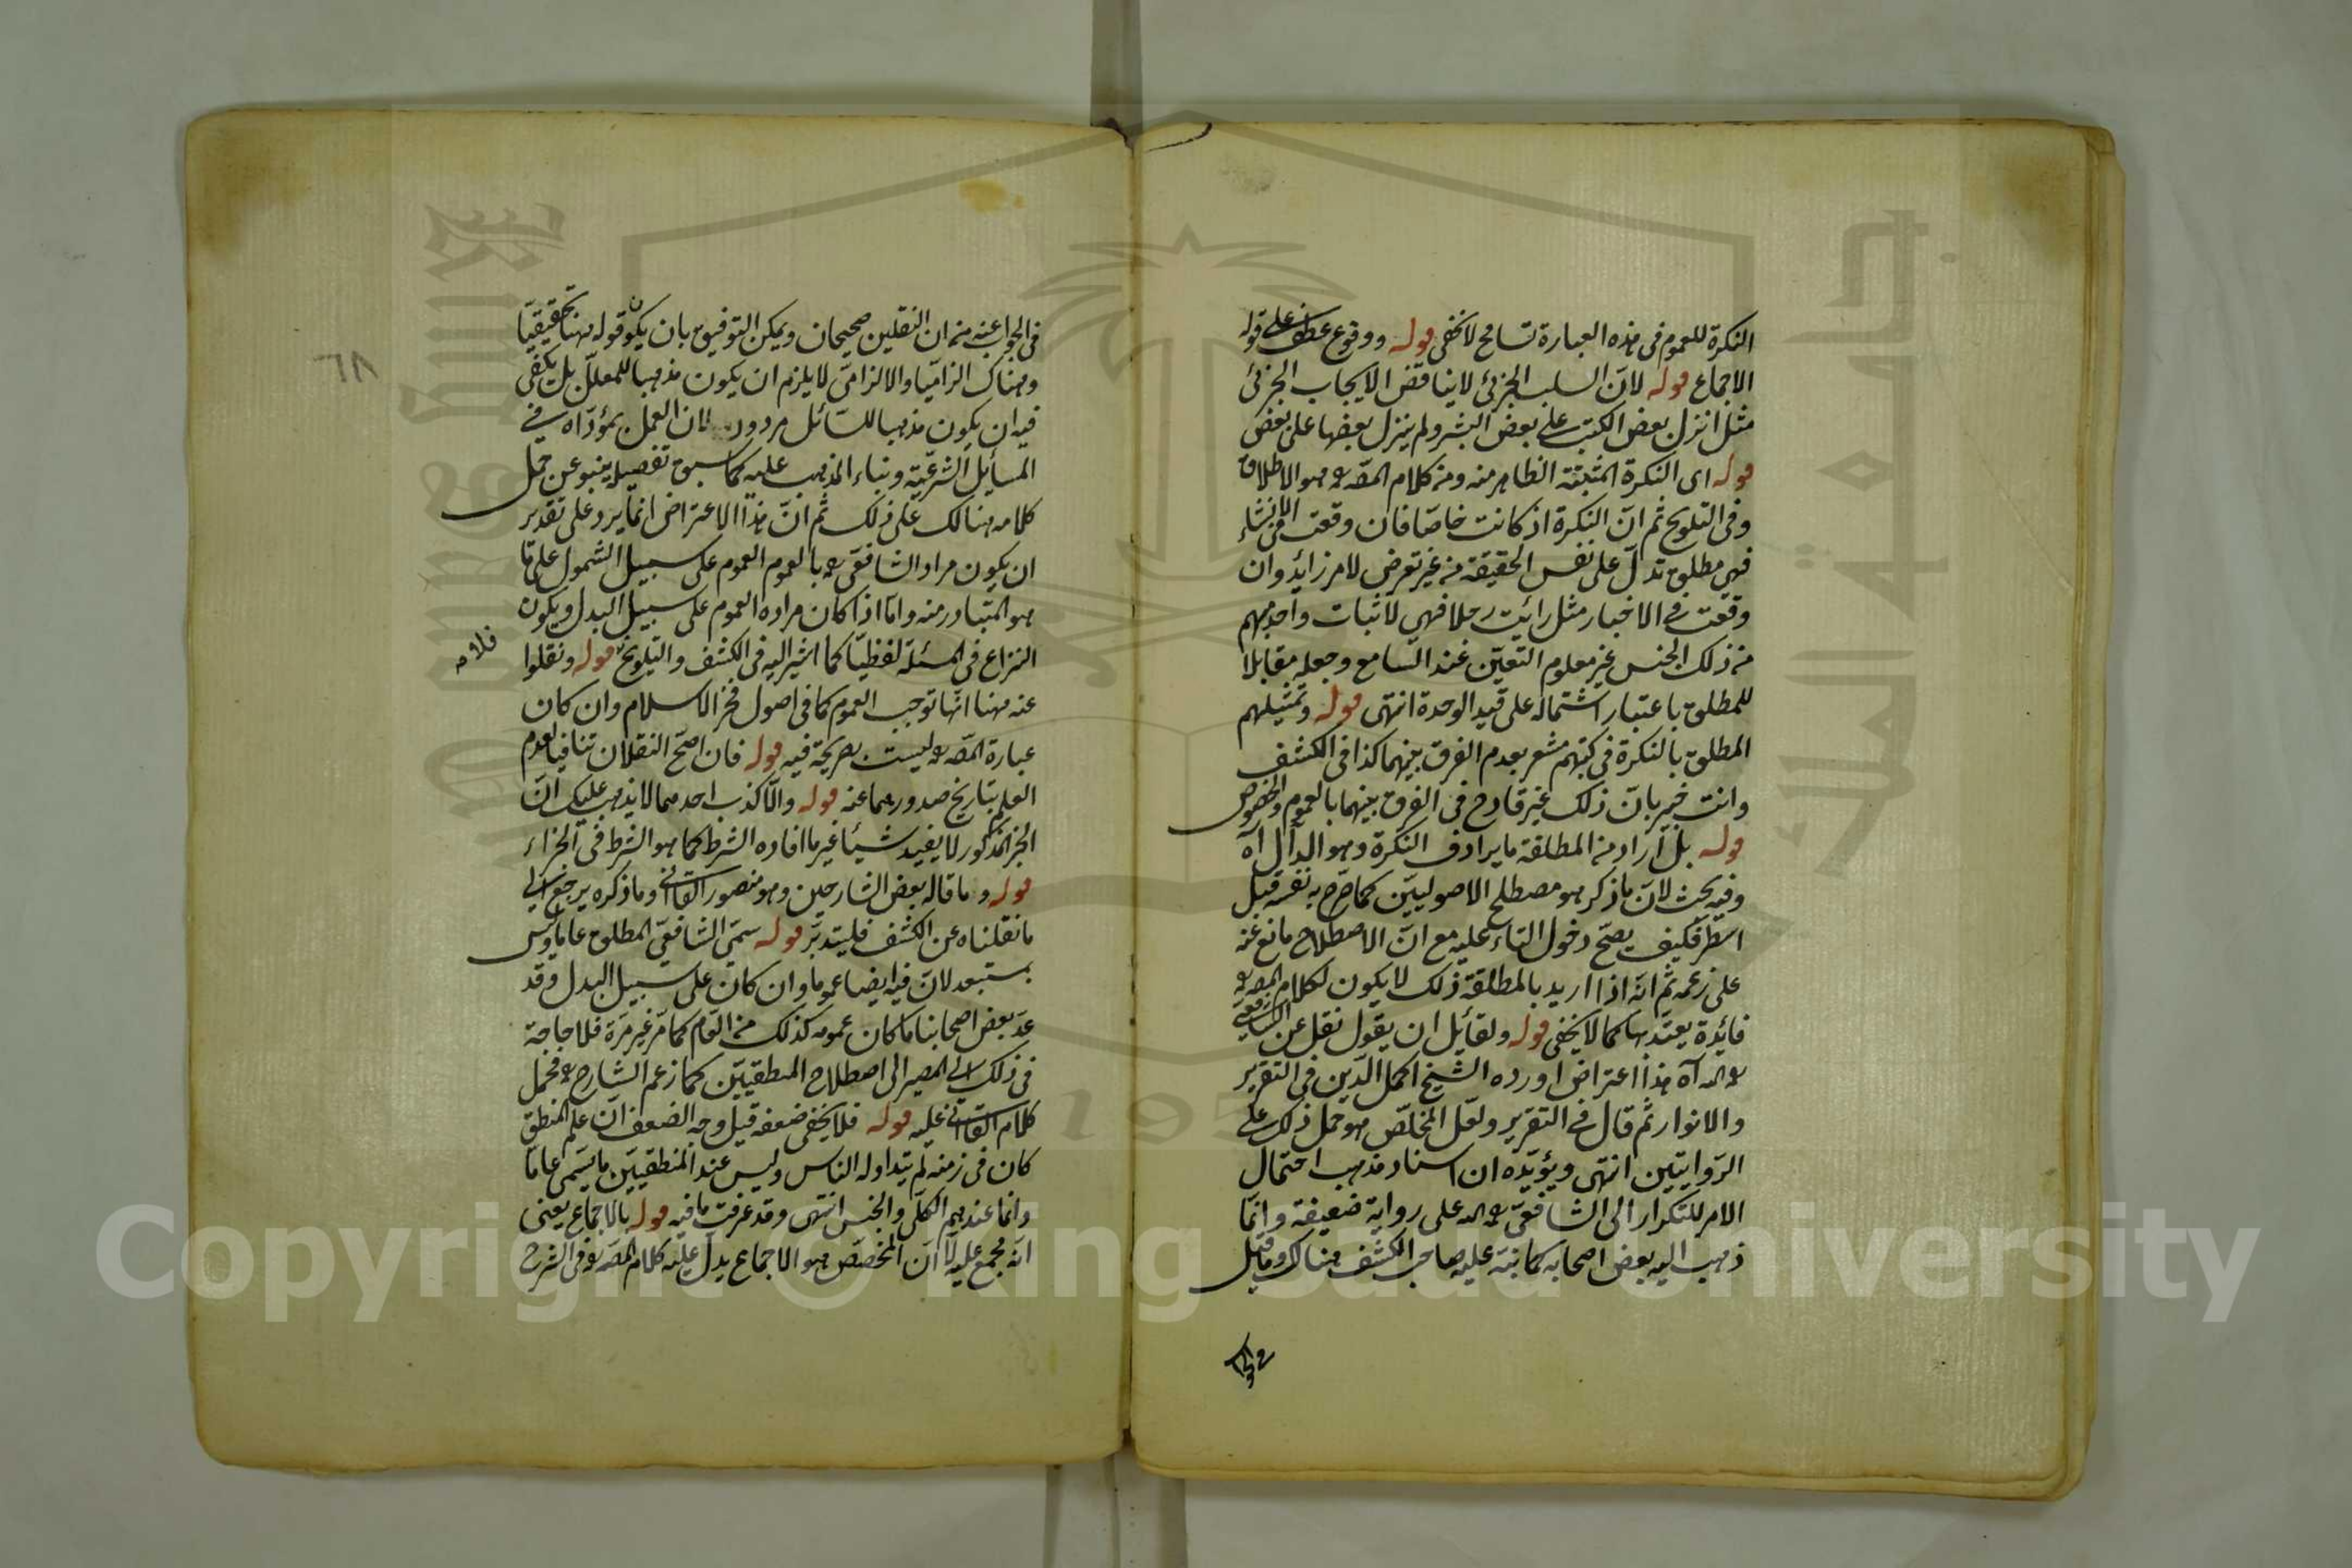 النكرة للعموم فى هذه العبارة تسامح لا يخفى قوله ووقوع عطف على قوله
الاجماع قوله لان السلب الجزئى لا يناقض الايجاب الجزئى
مثل انزل بعض الكتب على بعض البشر ولم ينزل بعضها على بعض
قوله اى النكرة المثبتة الظاهر منه ومن كلام المص ره هو الاطلاق
وفى التلويح ثم ان النكرة اذ كانت خاصا فان وقعت فى الانشاء
فهى مطلق تدل على نفس الحقيقة من غير تعرض لامر زائد وان
وقعت فى الاخبار مثل رائيت رجلا فهى لاثبات واحد مبهم
من ذلك الجنس غير معلوم التعين عند السامع وجعله مقابلا
للمطلق باعتبار اشتماله على قيد الوحدة انتهى قوله وتمثيلهم
المطلق بالنكرة فى كتبهم مشعر بعدم الفرق بينهما كذا فى الكشف
وانت خبير بان ذلك غير قادح فى الفرق بينهما بالعموم والخصوص
قوله بل اراد من المطلقة ما يرادف النكرة وهو الدال اه
وفيه بحث لان ما ذكر هو مصطلح الاصوليين كما صرح به نفسه قبل
اسطر فكيف يصح دخول التاء عليه مع ان الاصطلاح مانع عنه
على زعمه ثم انه اذا اريد بالمطلقة ذلك لا يكون لكلام المص ره
فائدة يعتد بها كما لا يخفى قوله ولقائل ان يقول نقل عن الشافعى
اه هذا اعتراض اورده الشيخ اكمل الدين فى التقرير
والانوار ثم قال فى التقرير ولعل المخلص هو حمل ذلك على
الروايتين انتهى ويؤيده ان اسناد مذهب احتمال
الامر للتكرار الى الشافعى على رواية ضعيفة وانما
ذهب اليه بعض اصحابه كما نبه عليه صاحب الكشف هناك وما قيل
فى الجواب عنه من ان النقلين صحيحان ويمكن التوفيق بان يكون قوله ههنا تحقيقيا
وهناك الزاميا والالزامى لا يلزم ان يكون مذهبا للمعلل بل يكفى
فيه ان يكون مذهبا للسائل مردود لان العمل بمؤداه فى
المسايل الشرعية وبناء المذهب عليه كما سبق تفصيله ينبو عن حمل
كلامه هنالك على ذلك ثم ان هذا الاعتراض انما يرد على تقدير
ان يكون مراد الشافعى ره بالعموم العموم على سبيل الشمول على ما
هو المتبادر منه واما اذا كان مراده العموم على سبيل البدل ويكون
النزاع فى المسئلة لفظيا كما اشير اليه فى الكشف والتلويح قوله ونقلوا
فلا
عنه ههنا انها توجب العموم كما فى اصول فخر الاسلام وان كان
عبارة المص ره ليست بصريحة فيه قوله فان اصح النقلان تنافيا لعدم
العلم بتاريخ صدورهما عنه قوله والا كذب احدهما لا يذهب عليك ان
الجزا المذكور لا يفيد شيئا غير ما افاده الشرط كما هو الشرط فى الجزاء
قوله وما قاله بعض الشارحين وهو منصور القاانى وما ذكره يرجع الى
ما نقلناه عن الكشف فليتدبر قوله سمى الشافعى المطلق عاما وليس
بمستبعد لان فيه ايضا عموما وان كان على سبيل البدل وقد
عد بعض اصحابنا ما كان عمومه كذلك من العام كما مر غير مرة فلا حاجة
فى ذلك الى المصير الى اصطلاح المنطقيين كما زعم الشارح ره فحمل
كلام القاانى عليه قوله فلا يخفى ضعفه قيل وجه الضعف ان علم المنطق
كان فى زمنه لم يتداوله الناس وليس عند المنطقيين ما يسمى عاما
وانما عندهم الكلى والجنس انتهى وقد عرفت ما فيه قوله بالاجماع يعنى
انه مجمع عليه لا ان المخصص هو الاجماع يدل عليه كلام المص ره فى الشرح
٦٨
Copyright © King Saud University